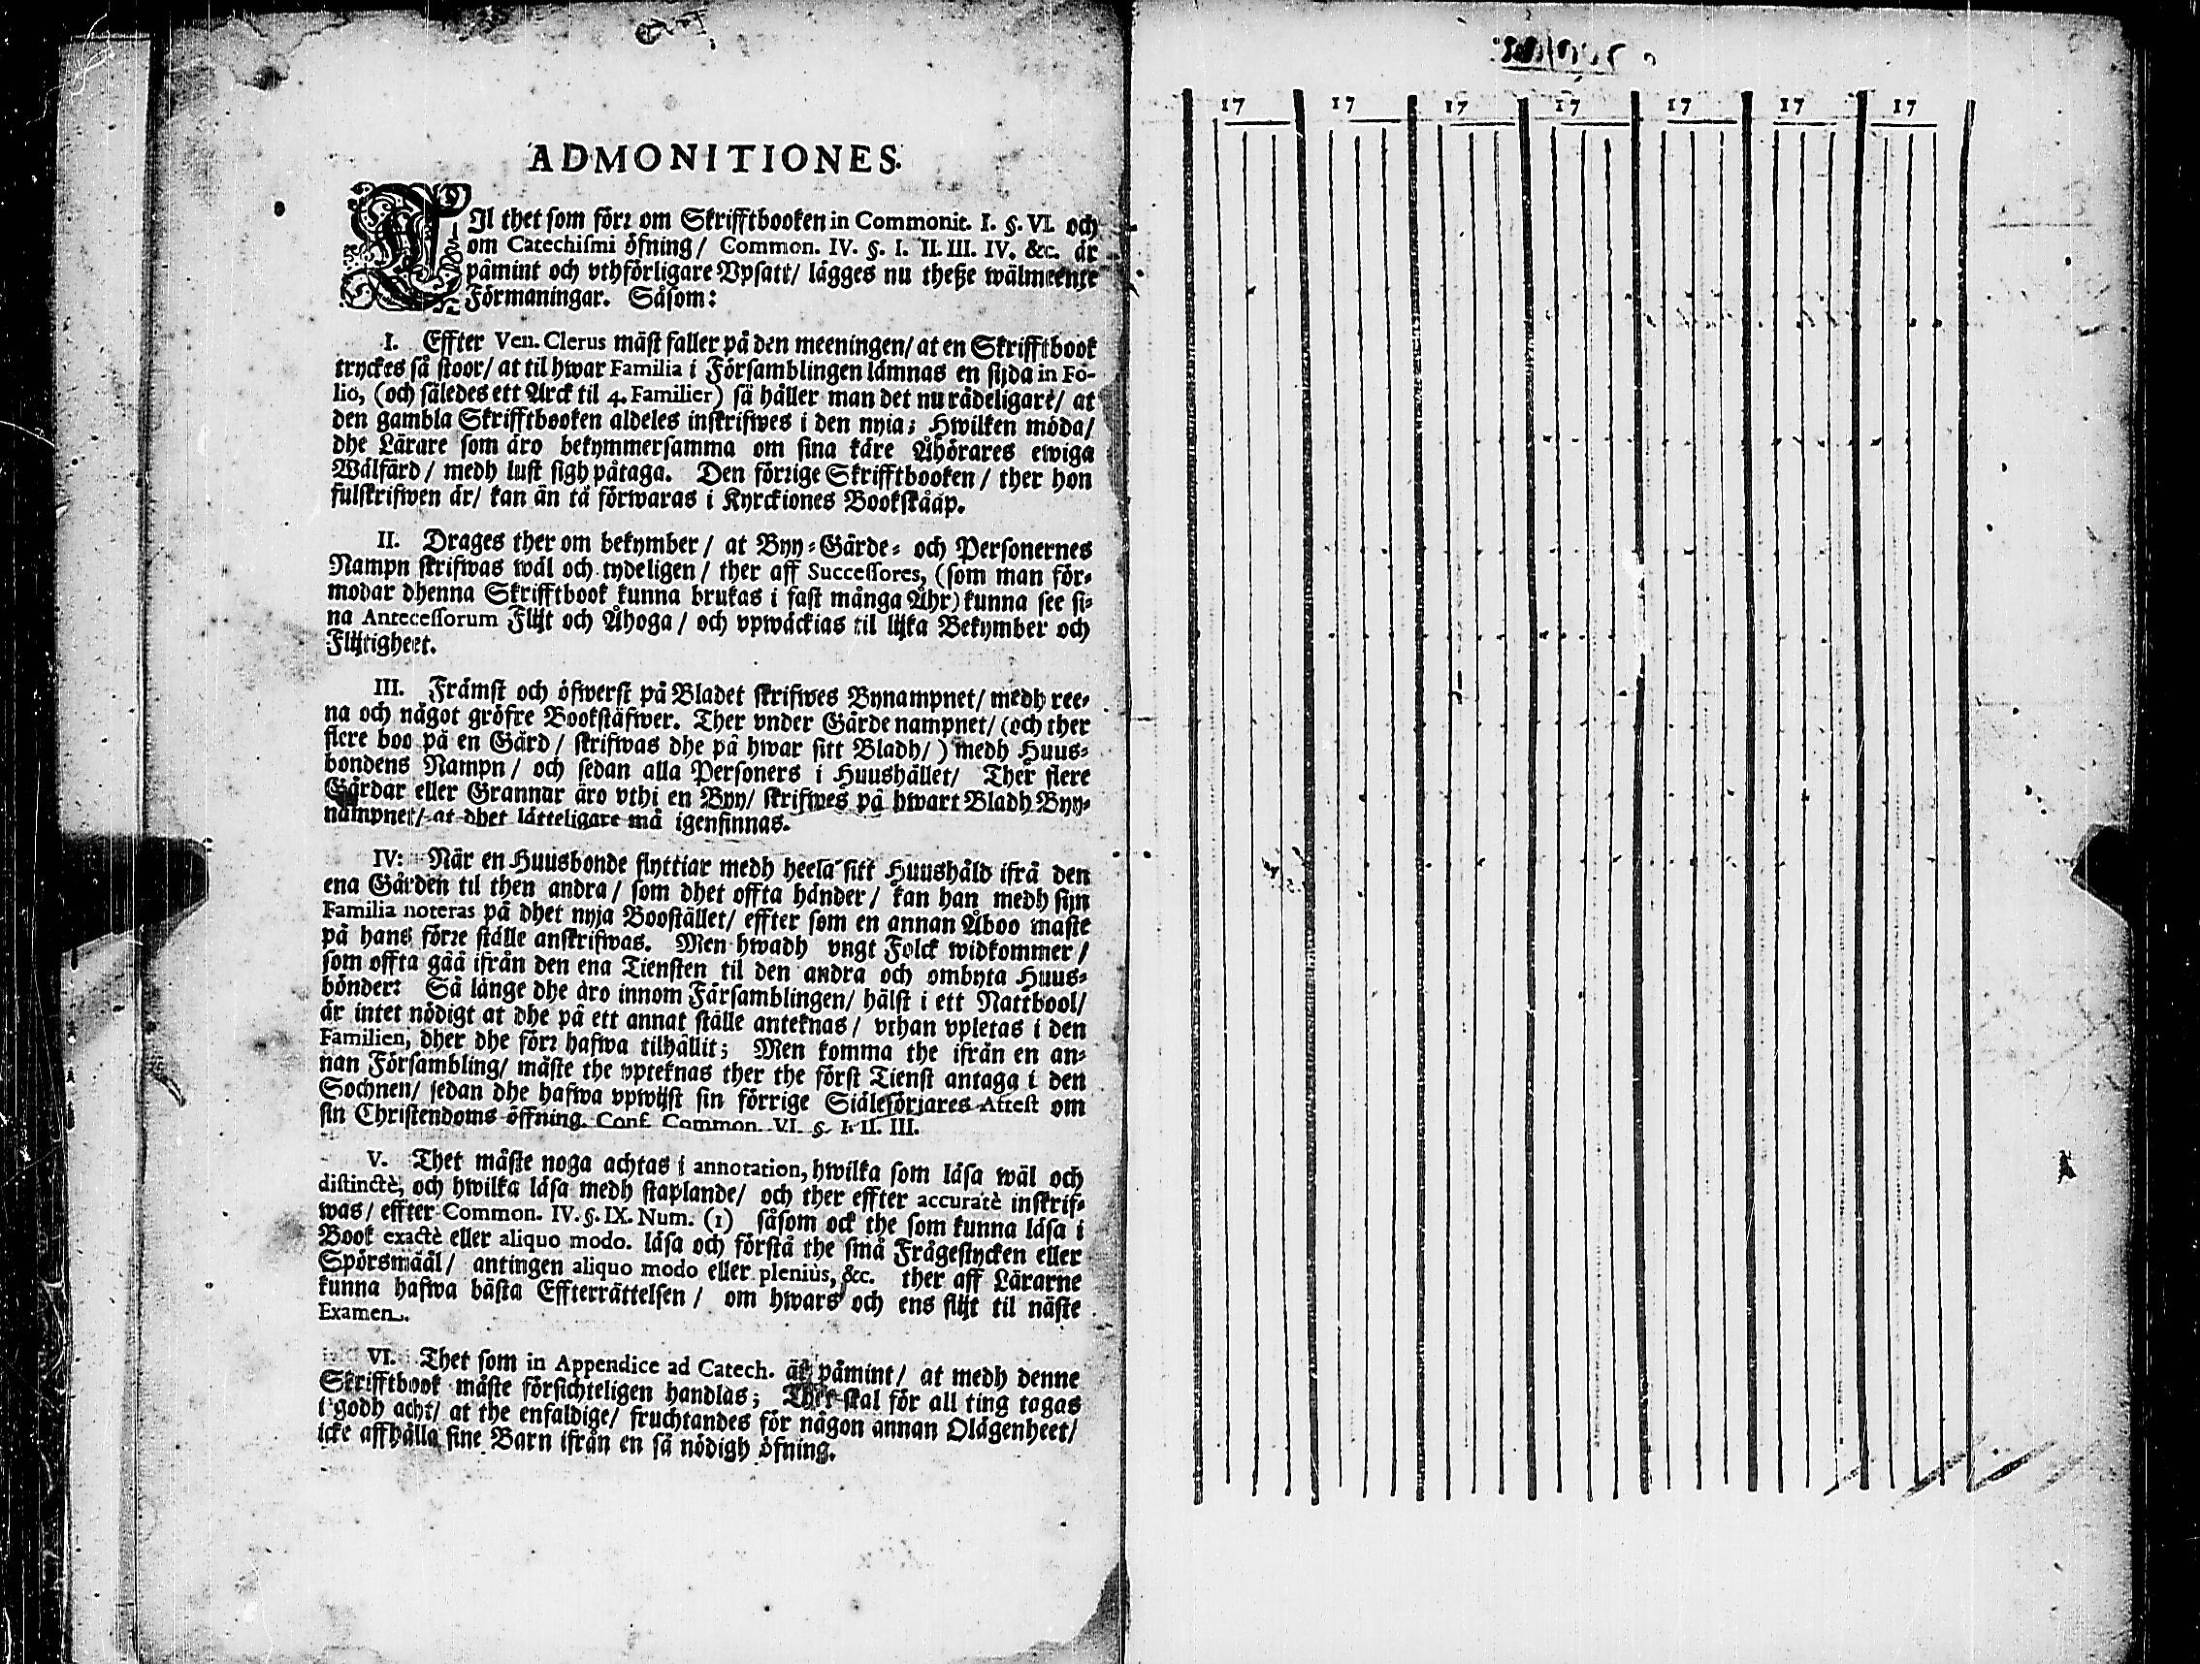 ADMONITIONES.
TIl thet som förr om Skrifftbooken in Commonit. I. §. VI. och
om Catechismi öfning/ Common. IV. §. I. II. III. IV. &c. är
påmint och vthförligare Vpsatt/ lägges nu theße wälmeente
Förmaningar. Såsom:
I. Effter Ven. Clerus mäst faller på den meeningen/ at en Skrifftbook
tryckes så stoor/ at til hwar Familia i Församblingen lämnas en sijda in Fo-
lio, (och således ett Arck til 4. Familier) så håller man det nu rådeligare/ at
den gambla Skrifftbooken aldeles inskrifwes i den nyia; Hwilken möda/
dhe Lärare som äro bekymmersamma om sina käre Åhörares ewiga
Wälfärd/ medh lust sigh påtaga. Den förrige Skrifftbooken/ ther hon
fulskrifwen är/ kan än tå förwaras i Kyrckiones Bookskååp.
II. Drages ther om bekymber/ at Byy-Gärde- och Personernes
Nampn skrifwas wäl och tydeligen/ ther aff Successores, (som man för-
modar dhenna Skrifftbook kunna brukas i fast många Åhr) kunna see si-
na Antecessorum Flijt och Åhoga/ och vpwäckias til lijka Bekymber och
Flijtigheet.
III. Främst och öfwerst på Bladet skrifwes Bynampnet/ medh ree-
na och något gröfre Bookstäfwer. Ther vnder Gårde nampnet/ (och ther
flere boo på en Gård/ skrifwas dhe på hwar sitt Bladh/) medh Huus-
bondens Nampn/ och sedan alla Personers i Huushållet/ Ther flere
Gårdar eller Grannar äro vthi en Byy/ skrifwes på hwart Bladh Byy-
nampnet/ at dhet lätteligare må igenfinnas.
IV: När en Huusbonde flyttiar medh heela sitt Huushåld ifrå den
ena Gården til then andra/ som dhet offta händer/ kan han medh sijn
Familia noteras på dhet nyja Boostället/ effter som en annan Åboo måste
på hans förre ställe anskrifwas. Men hwadh vngt Folck widkommer/
som offta gåå ifrån den ena Tiensten til den andra och ombyta Huus-
bönder: Så länge dhe äro innom Församblingen/ hälst i ett Nattbool/
är intet nödigt at dhe på ett annat ställe anteknas/ vthan vpletas i den
Familien, dher dhe förr hafwa tilhållit; Men komma the ifrån en an-
nan Försambling/ måste the vpteknas ther the först Tienst antaga i den
Sochnen/ sedan dhe hafwa vpwijst sin förrige Siälesörjares Attest om
sin Christendoms öffning. Conf. Common. VI. §. I. II. III.
V. Thet måste noga achtas i annotation, hwilka som läsa wäl och
distinctè, och hwilka läsa medh staplande/ och ther effter accuratè inskrif-
was/ effter Common. IV. §. IX. Num. (1) såsom ock the som kunna läsa i
Book exactè eller aliquo modo. läsa och förstå the små Frågestycken eller
Spörsmååhl/ antingen aliquo modo eller pleniùs, &c. ther aff Lärarne
kunna hafwa bästa Effterrättelsen/ om hwars och ens flijt til näste
Examen.
VI. Thet som in Appendice ad Catech. är påmint/ at medh denne
Skrifftbook måste försichteligen handlas; Ther skal för all ting tagas
i godh acht/ at the enfaldige/ fruchtandes för någon annan Olägenheet/
icke affhålla sine Barn ifrån en så nödigh öfning.
17 17 17 17 17 17 17